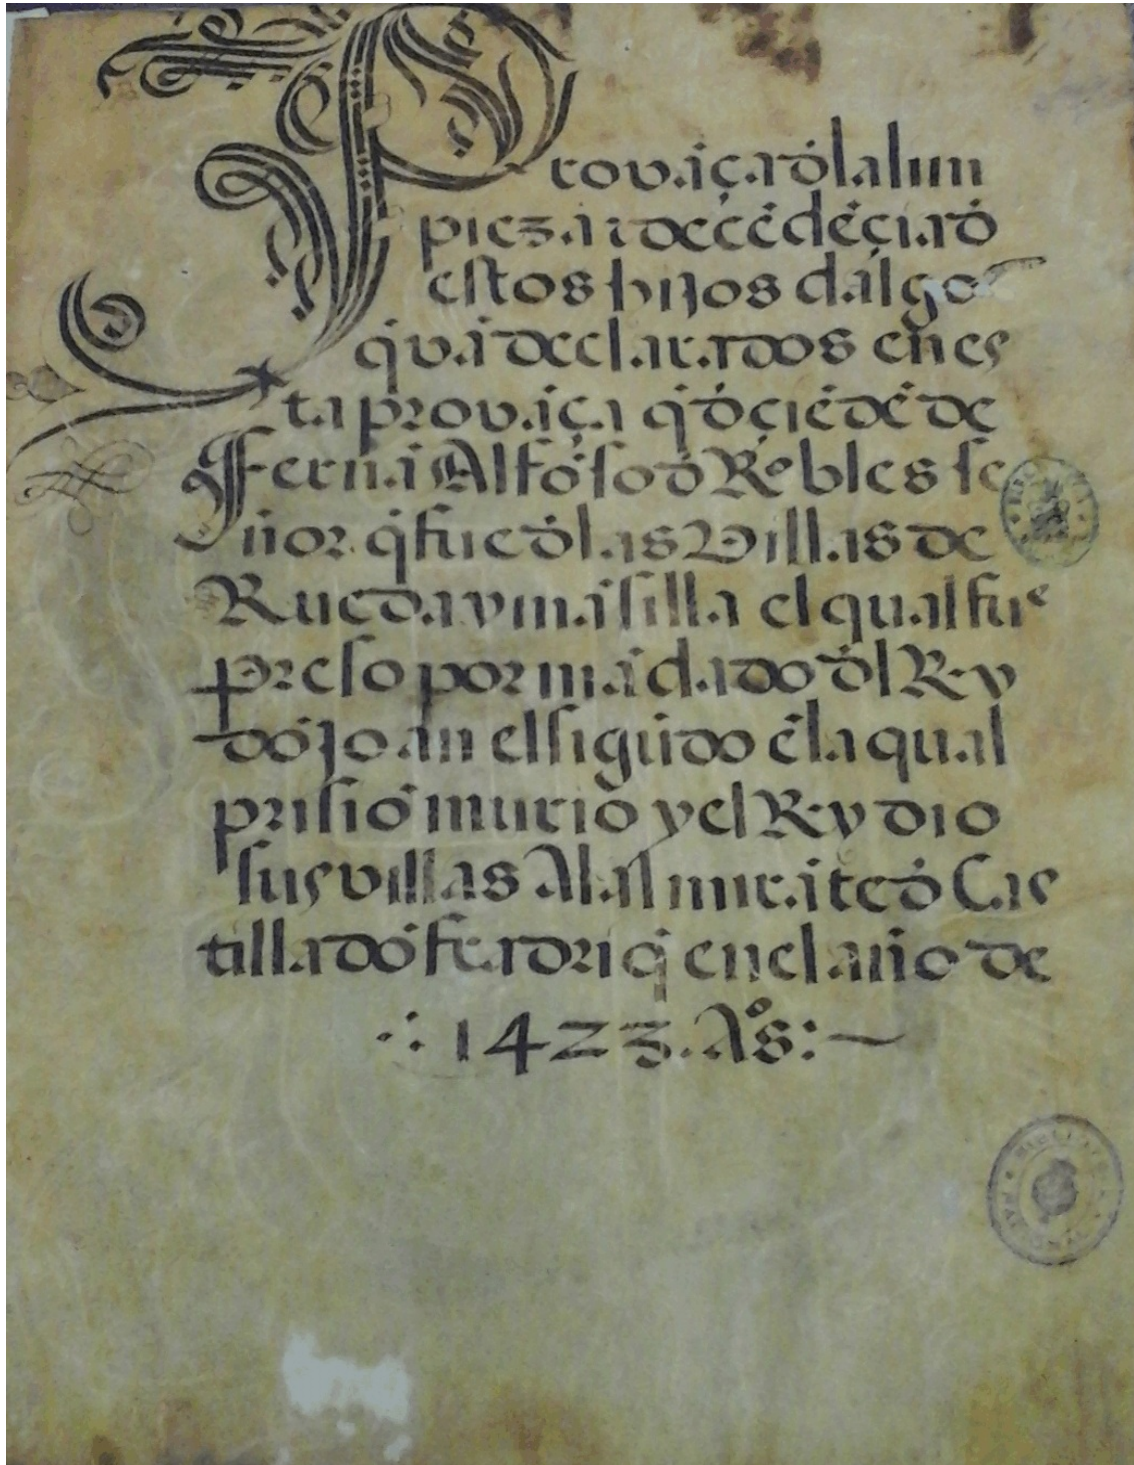 Provāça d̄ la lim
pieza i decēdēçia d̄
estos hijos dalgo
q̄ vā declarados en es
ta provāça q̄ d̄çiēdē de
Fernā Alfōso d̄ Robles se
ñor q̄ fue d̄ las Villas de
Rueda y māsilla el qual fue
Preso por mādado d̄l Rey
dō Joan el sigūdo ē la qual
prisiō murio y el Rey dio
sus villas Al almirāte d̄ Cas
tilla dō fadriq̄ en el año de
∴ 1423. Aºs:~